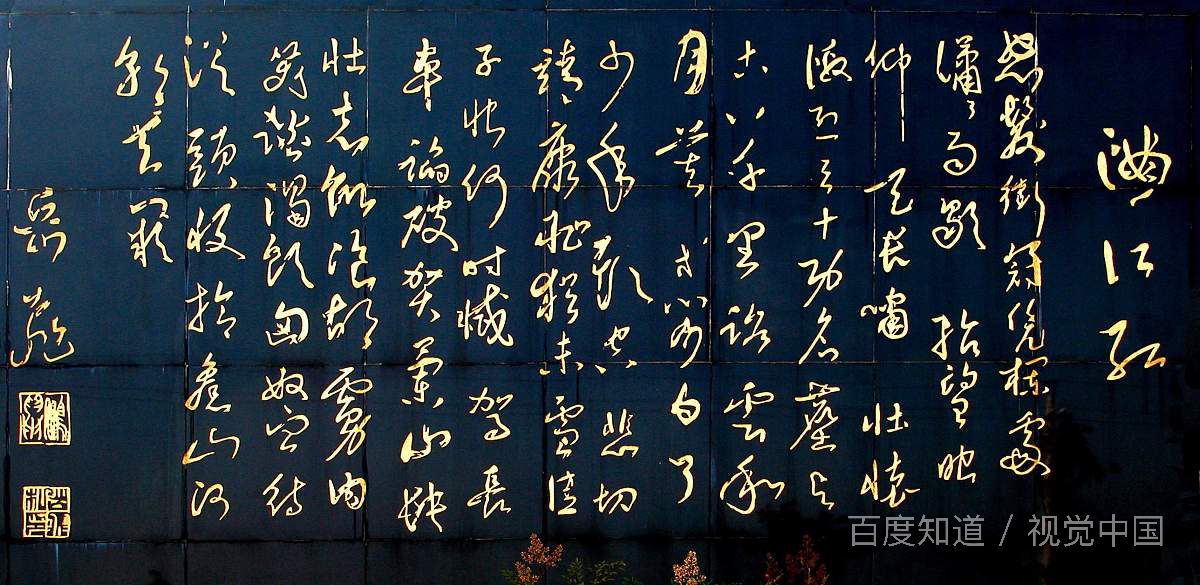 满江红
怒髪衝冠凭栏處
潇々雨歇抬望眼
仰天长啸壮懷
激烈三十功名塵与
土八千里路雲和
月莫等闲白了
少年头空悲切
靖康耻猶未雪臣
子恨何时憾驾長
車踏破贺兰山缺
壮志飢餐胡虏肉
笑谈渴饮匈奴血待
從頭收拾舊山河
朝天阙
岳飛
百度知道 / 视觉中国